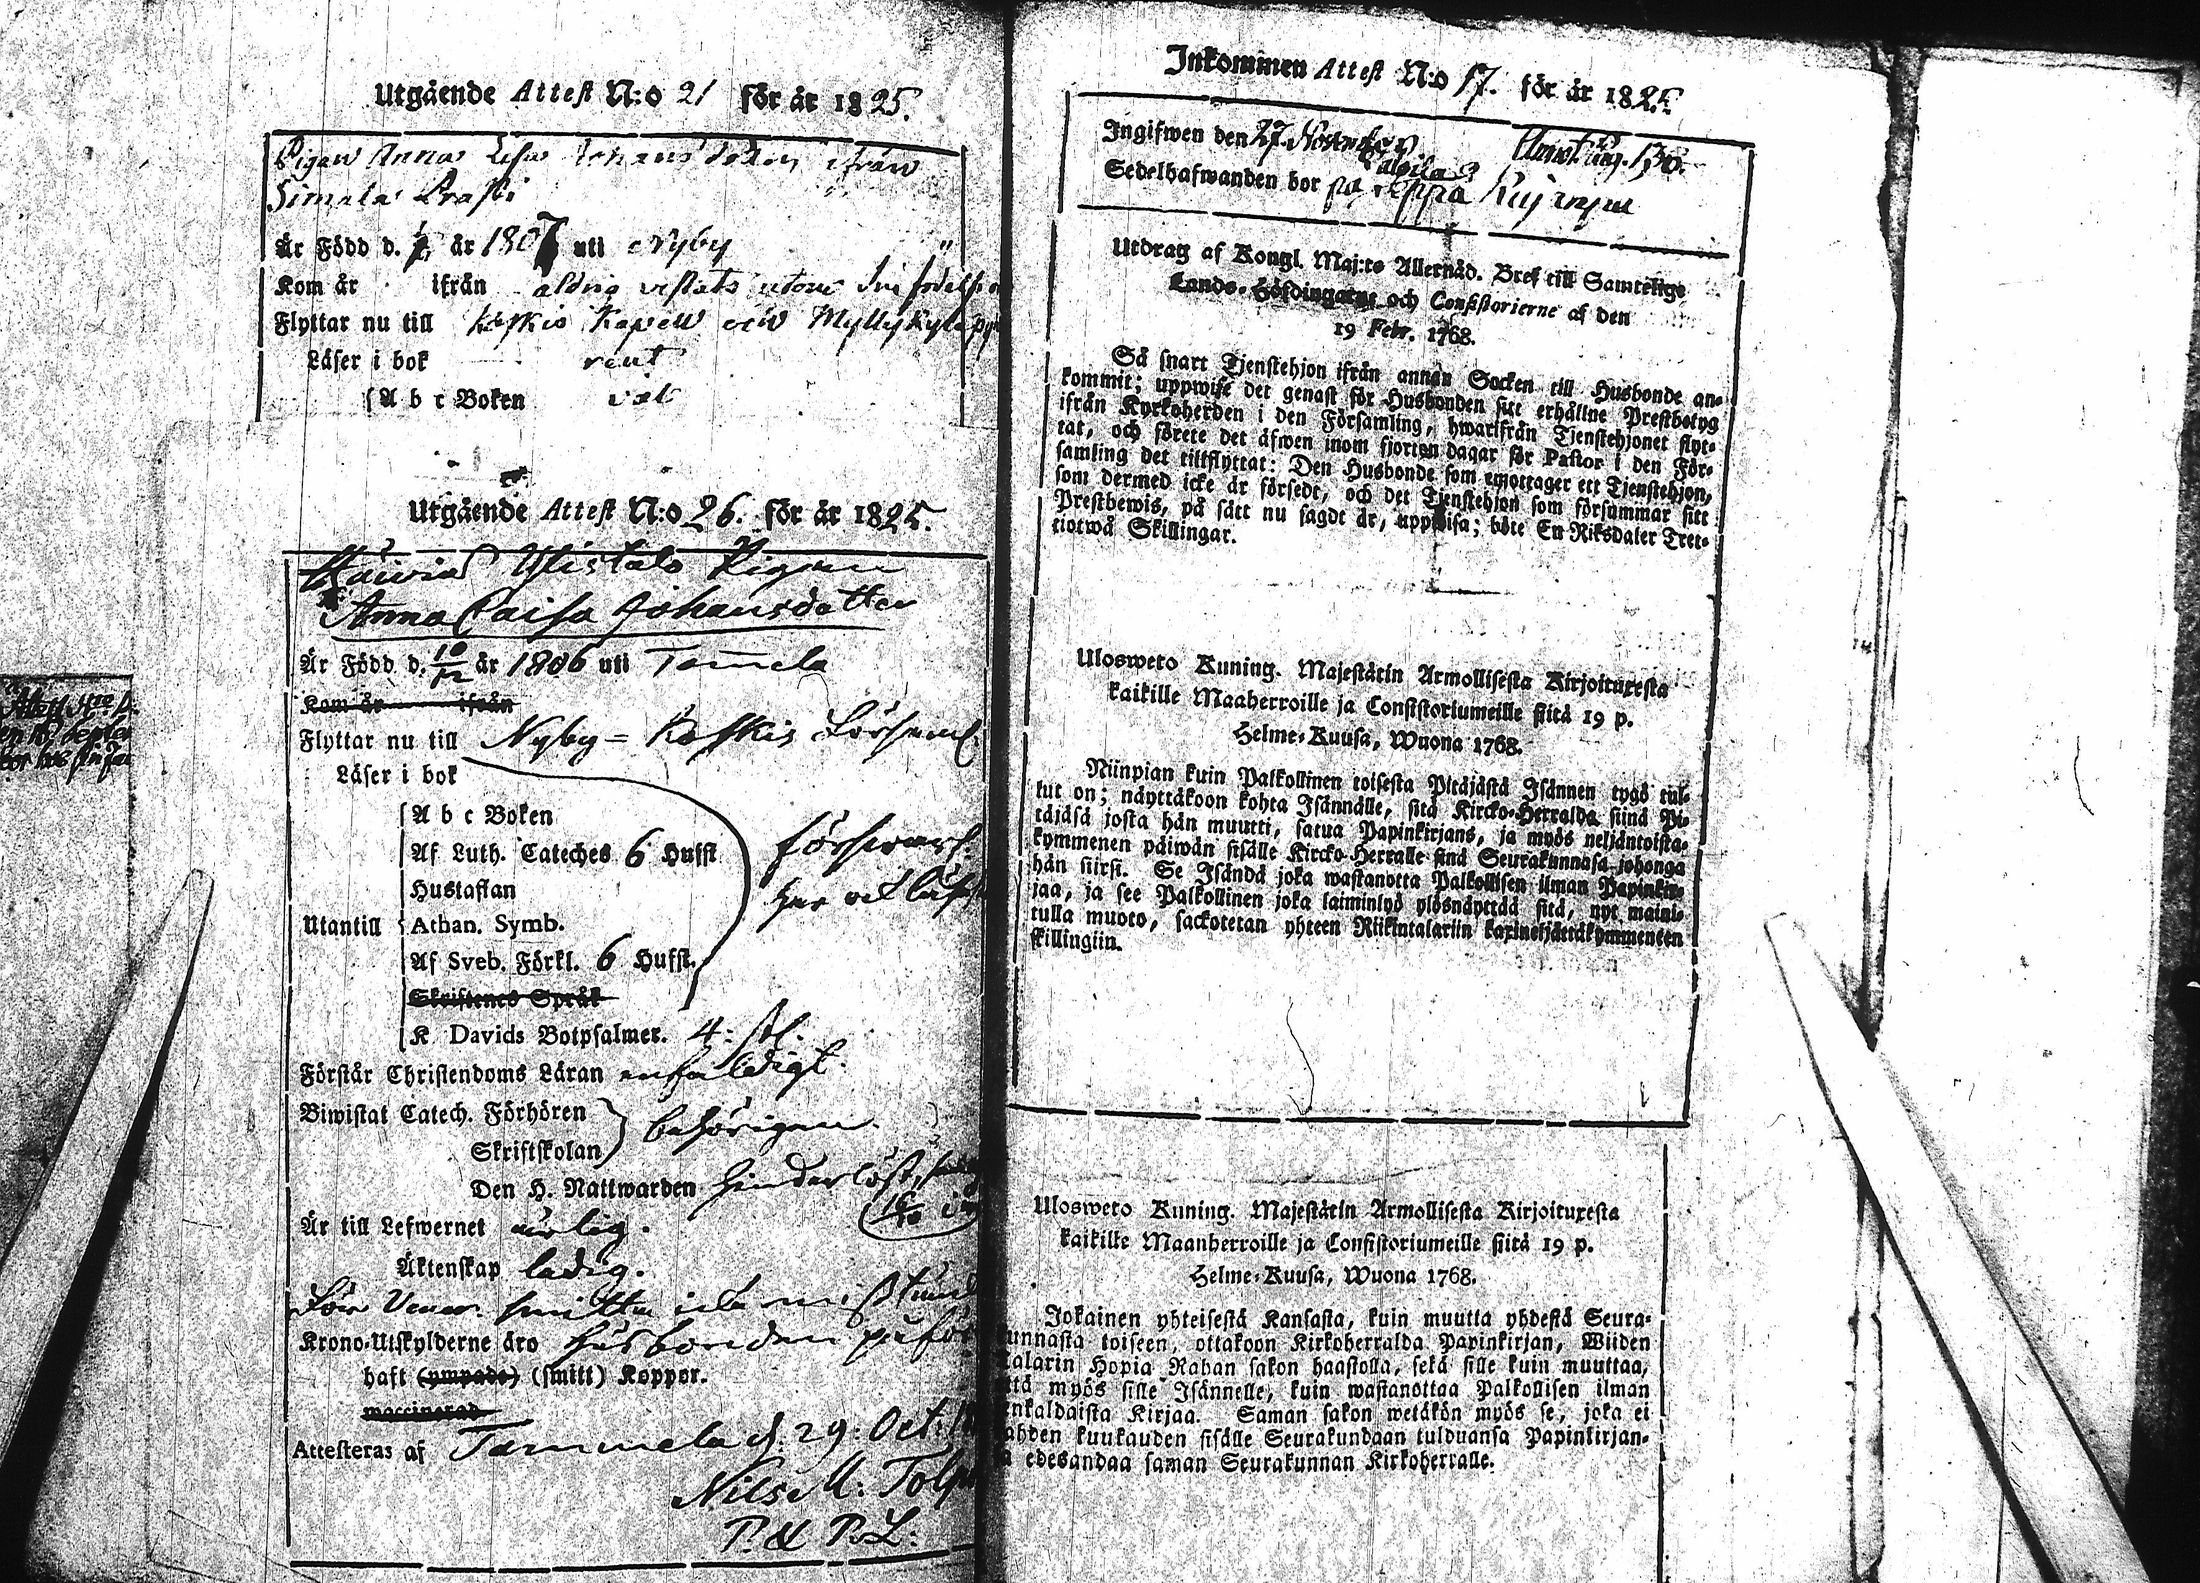 Utgående Attest N:o 21 för år 1825.
Pigan Anna Lisa Johansdotter ifrån
Simala Prasti
Är Född d. år 1807 uti Nyby
Kom år ifrån aldrig vistats utom sin födelse
Flyttar nu till Koskis Kapell och Myllykylä
Läser i bok rent
A b c Boken väl
Utgående Attest N:o 26. för år 1825.
Pigan
Anna Caisa Johansdotter
Är Född d. 10/12 år 1806 uti Tammela
Kom år ifrån
Flyttar nu till Nyby = Koskis Församl.
Läser i bok
A b c Boken
Af Luth. Cateches 6 Hufst
försvarl.
Hustaflan
har väl läst
Utantill Athan. Symb.
Af Sveb. Förkl. 6 Hufst.
Skriftenes Språk
K. Davids Botpsalmer. 4. st.
Förstår Christendoms Läran enfaldigt.
Biwistat Catech. Förhören
behörigen.
Skriftskolan
Den H. Nattwarden hinderlöst,
Är till Lefwernet ärlig.
Äktenskap ledig.
För Vener. smitta icke misstänkt
Krono-Utskylderne äro husbonden påförde
haft (ympade) (smitt) Koppor.
waccinerad
Attesteras af Tammela d. 29. Oct.
Nils M:
P. & P. L:
Attest
Inkommen Attest N:o 17. för år 1825.
Ingifwen den 27 November pag. 130.
Sedelhafwanden bor på
Utdrag af Kongl. Maj:ts Allernåd. Bref till Samtelige
Lands-Höfdingarne och Consistorierne af den
19 Febr. 1768.
Så snart Tjenstehjon ifrån annan Socken till Husbonde an-
kommit; uppwise det genast för Husbonden sitt erhållne Prestbetyg
ifrån Kyrkoherden i den Församling, hwarifrån Tjenstehjonet flyt-
tat, och förete det äfwen inom fjorton dagar för Pastor i den För-
samling det tillflyttat: Den Husbonde som emottager ett Tjenstehjon,
som dermed icke är försedt, och det Tjenstehjon som försummar sitt
Prestbewis, på sätt nu sagdt är, uppwisa; böte En Riksdaler Tret-
tiotwå Skillingar.
Ulosweto Kuning. Majestätin Armollisesta Kirjoituxesta
kaikille Maaherroille ja Consistoriumeille siitä 19 p.
Helme-Kuusa, Wuona 1768.
Niinpian kuin Palkollinen toisesta Pitäjästä Isännen tygö tul-
lut on; näyttäkoon kohta Isännälle, sitä Kircko-Herralda siinä Pi-
täjäsä josta hän muutti, satua Papinkirjans, ja myös neljäntoista-
kymmenen päiwän sisälle Kircko-Herralle sinä Seurakunnasa johonga
hän siirsi. Se Isändä joka wastanotta Palkollisen ilman Papinkir-
jaa, ja see Palkollinen joka laiminlyö ylösnäyttää sitä, nyt maini-
tulla muoto, sackotetan yhteen Riikintalariin kaxineljättäkymmenteen
skillingiin.
Ulosweto Kuning. Majestätin Armollisesta Kirjoituxesta
kaikille Maanherroille ja Consistoriumeille siitä 19 p.
Helme-Kuusa, Wuona 1768.
Jokainen yhteisestä Kansasta, kuin muutta yhdestä Seura-
unnasta toiseen, ottakoon Kirkoherralda Papinkirjan, Wiiden
alarin Hopia Rahan sakon haastolla, sekä sille kuin muuttaa,
tä myös sille Isännelle, kuin wastanottaa Palkollisen ilman
nkaldaista Kirjaa. Saman sakon wetäkön myös se, joka ei
ahden kuukauden sisälle Seurakundaan tulduansa Papinkirjan-
a edesandaa saman Seurakunnan Kirkoherralle.